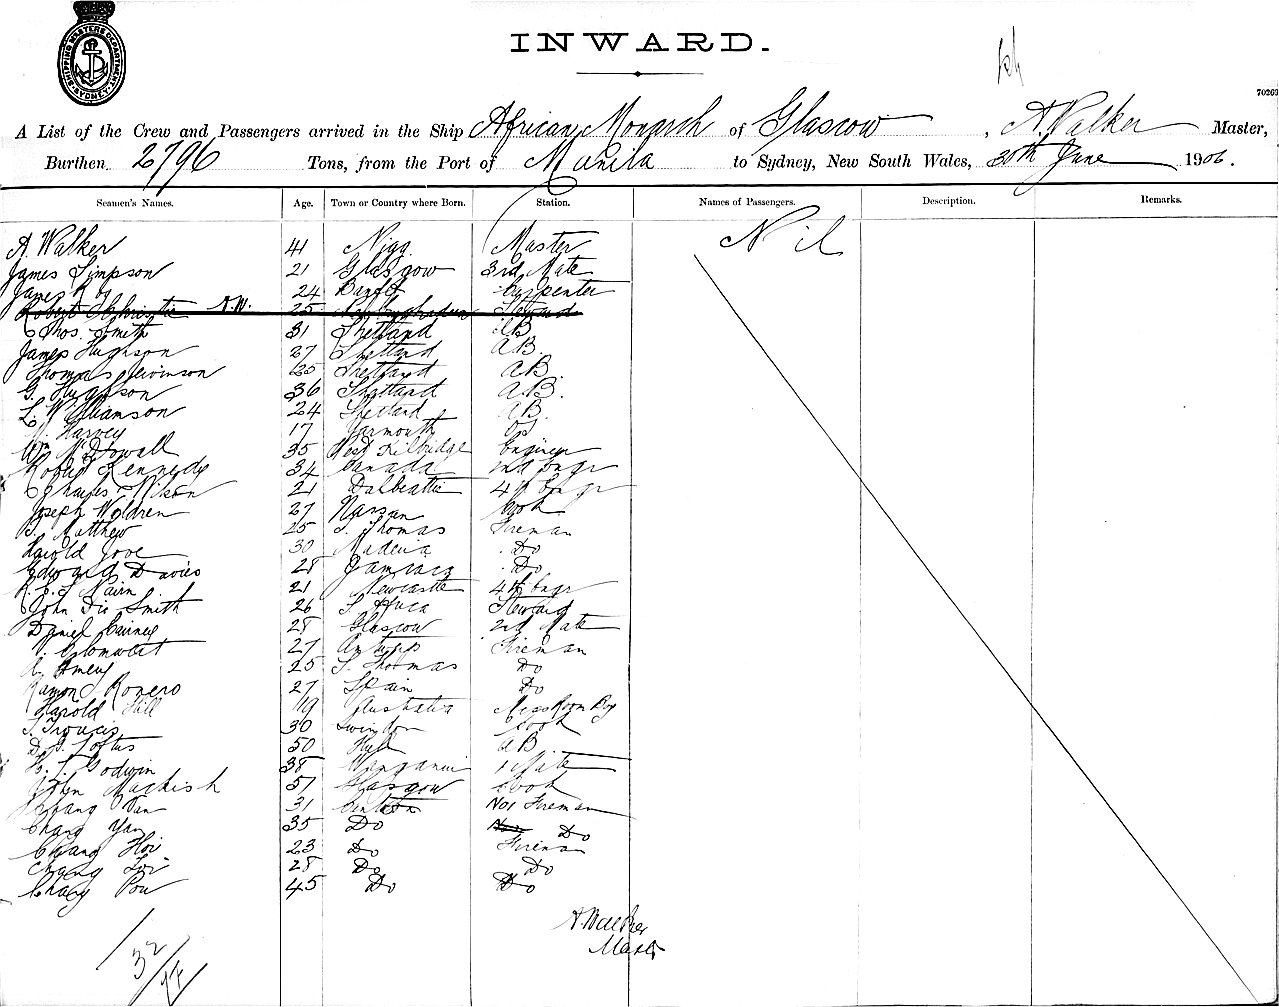 SHIPPING MASTERS DEPARTMENT SYDNEY
INWARD.
70269
A List of the Crew and Passengers arrived in the Ship African Monarch of Glascow, A. Walker Master,
Burthen 2796 Tons, from the Port of Manila to Sydney, New South Wales, 30th June 1906.
Seamen's Names. Age. Town or Country where Born. Station. Names of Passengers. Description. Remarks.
A. Walker 41 Nigg Master Nil
James Simpson 21 Glasgow 3rd Mate
James 24 Banff Carpenter
Robert A.W. 25 Steward
Thos. Smith 31 Shetland AB
James Hughson 27 Shetland AB
Thomas 25 Shetland AB
G. Hughson 36 Shetland AB.
L. Williamson 24 Shetland AB
Harvey 17 Yarmouth OS
Wm McDowall 35 West Kilbridge Engineer
Robert Kennedy 34 Canada 2nd Engr
Charles Nixon 21 Dalbeattie 4th Engr
Joseph Woldren 27 Cook
Matthew 25 S. Thomas Fireman
Harold Jove 30 Madeira Do
Edward Davies 28 Jamaica Do
Nairn 21 Newcastle 4th Engr
John Smith 26 S Africa Steward
Daniel 28 Glascow 2nd Mate
27 Antwerp Fireman
A. Amery 25 S. Thomas Do
Ramon Romero 27 Spain Do
Harold Hill 19 Australia Mess Room Boy
Francis 30 Swindon Cook
D. Loftus 50 Hull AB
Godwin 38 Wanganui 1 Mate
John Mackish 51 Glasgow Cook
31 Canton No1 Fireman
Chang Yan 35 Do Do
Chang Hoi 23 Do Fireman
Chang 28 Do Do
Chang Pow 45 Do Do
A. Walker
Master
32